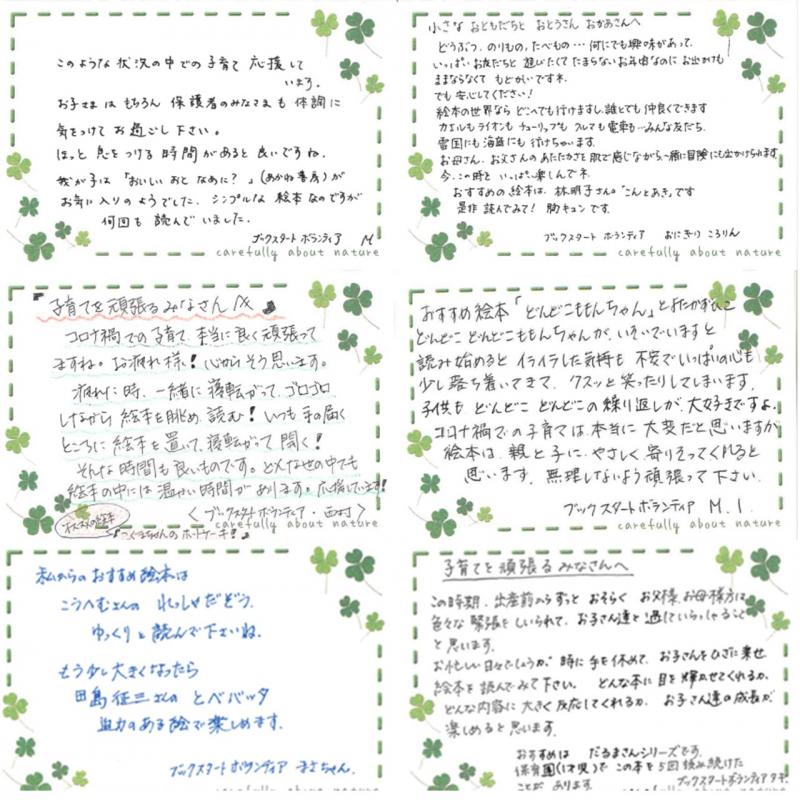 このような状況の中での子育て 応援して
います。
お子さまはもちろん 保護者のみなさまも 体調に
気をつけてお過ごし下さい。
ほっと 息をつける 時間があると良いですね。
我が子は「おいしい おと なあに?」(あかね書房)が
お気に入りのようでした。シンプルな 絵本なのですが
何回も 読んでいました。
ブックスタート ボランティア M
carefully about nature
小さな おともだちと おとうさん おかあさんへ
どうぶつ、のりもの、たべもの…何にでも興味があって、
いっぱい お友だちと 遊びたくて たまらないお年頃なのに お出かけも
ままならなくて もどかしいですネ。
でも 安心してください!
絵本の世界なら どこへでも行けますし、誰とでも 仲良くできます
カエルも ライオンも チューリップも クルマも 電車も…みんな友だち。
雪国にも 海底にも 行けちゃいます。
お母さん、お父さんの あたたかさを 肌で感じながら、一緒に冒険にも出かけられます
今、この時を いっぱい楽しんでネ。
おすすめの 絵本は、林明子さんの「こんとあき」です
是非 読んでみて! 胸キュンです。
ブックスタート ボランティア おにぎり ころりん
carefully about nature
子育てを頑張るみなさんへ
コロナ禍での子育て、本当に良く頑張って
ますね。お疲れ様!心からそう思います。
疲れた時、一緒に寝転がって、ゴロゴロ
しながら 絵本を眺め、読む!いつも手の届く
ところに 絵本を置いて、寝転がって 開く!
そんな時間も良いものです。どんなせの中でも
絵本の中には 温かい時間があります。応援しています!
<ブックスタートボランティア・西村>
オススメの絵本
『しろくまちゃんの ホットケーキ!』
carefully about nature
おすすめ絵本「どんどこももんちゃん」とよたかずひこ
どんどこ どんどこももんちゃんが、いそいでいますと
読み始めると イライラした気持も 不安でいっぱいの心も
少し落ち着いてきて、クスッと笑ったりしてしまいます。
子供も どんどこ どんどこの繰り返しが、大好きですよ。
コロナ禍での子育ては、本当に 大変だと思いますが
絵本は、親と子に、やさしく 寄りそってくれると
思います。無理しないよう 頑張って 下さい。
ブックスタートボランティア M.I.
carefully about nature
私からのおすすめ絵本は
こうへむさんの れっしゃだぞう。
ゆっくりと読んで下さいね。
もう少し大きくなったら
田島征三さんの とべバッタ
迫力のある絵で楽しめます。
ブックスタートボランティア まさちゃん.
carefully about nature
子育てを頑張るみなさんへ
この時期、出産前からずっと おそらく お父様、お母様方は
色々な 緊張をしいられて、お子さん達と 過していらっしゃること
と思います。
お忙しい日々でしょうが、時に 手を休めて、お子さんをひざに乗せ
絵本を読んでみて下さい。どんな本に 目を輝かせてくれるか、
どんな内容に 大きく反応してくれるか、お子さん達の成長が
楽しめると思います。
おすすめは だるまさんシリーズです。
保育園(1才児)で この本を 5回読み続けた
ことがあります。
ブックスタートボランティア タ子